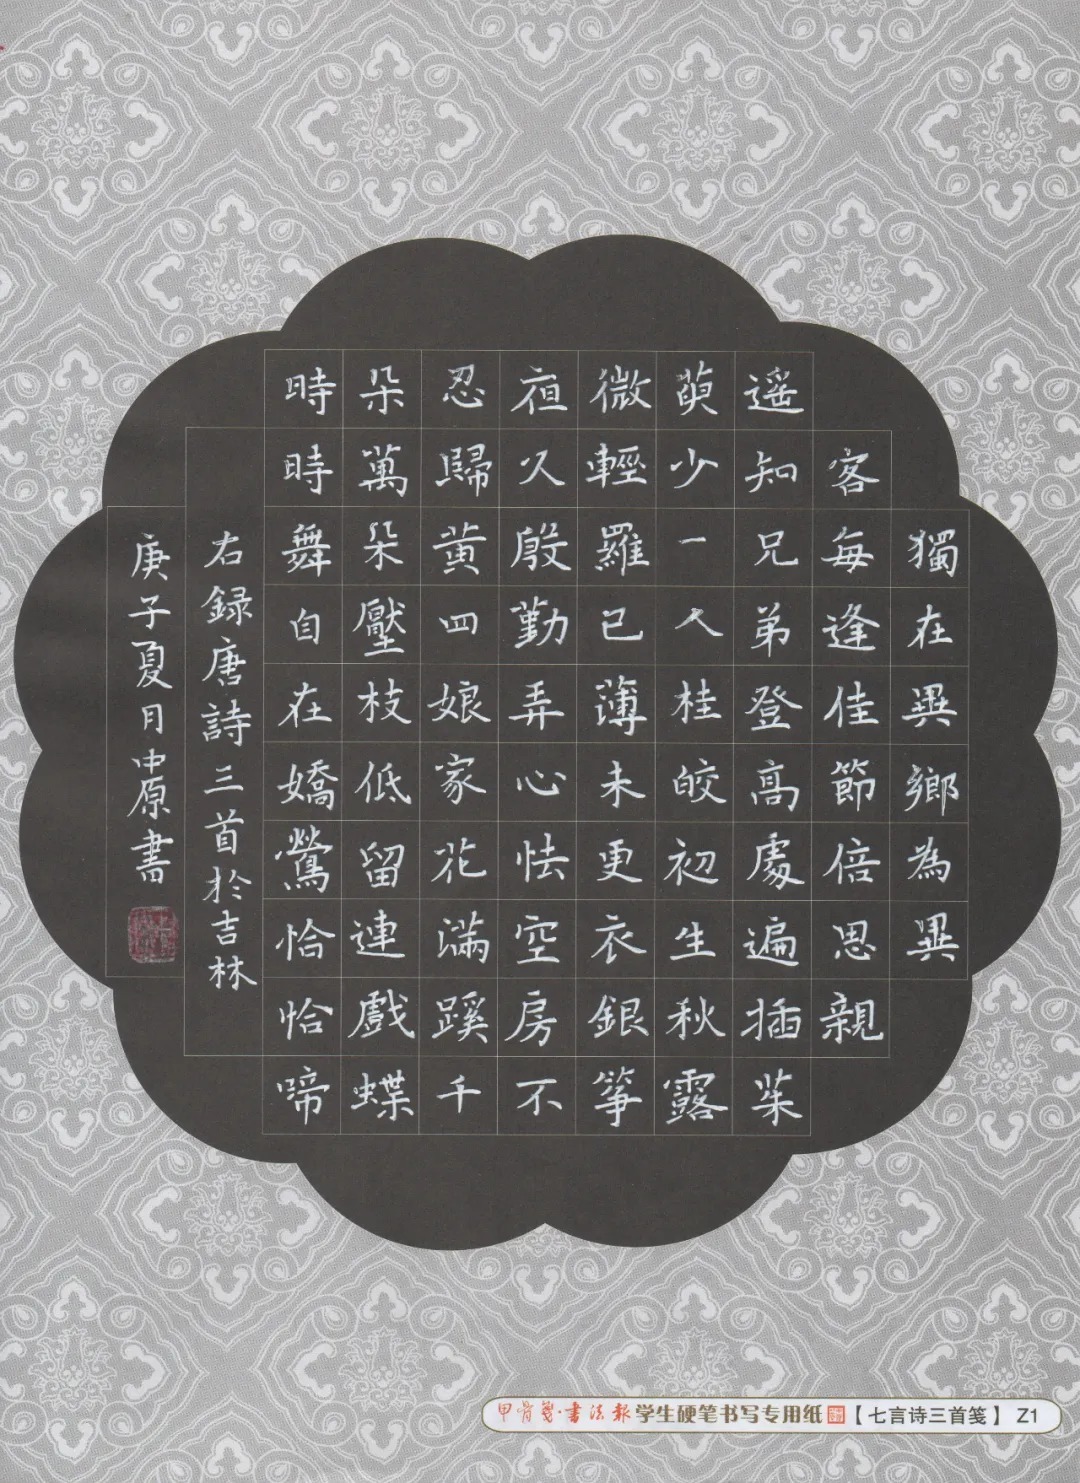 獨在異鄉為異
客每逢佳節倍思親
遥知兄弟登高處遍插茱
萸少一人桂皎初生秋露
微輕羅已薄未更衣銀箏
夜久殷勤弄心怯空房不
忍歸黄四娘家花滿蹊千
朵萬朵壓枝低留連戲蝶
時時舞自在嬌鶯恰恰啼
右録唐詩三首於吉林
庚子夏月中原書
甲骨笺·书法报学生硬笔书写专用纸【七言诗三首笺】 Z1